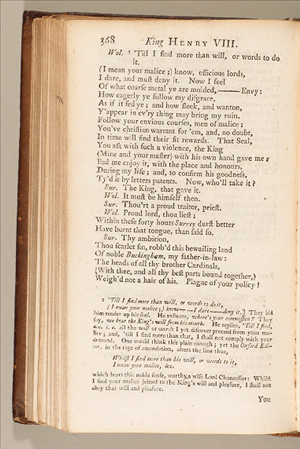 368 King HENRY VIII.
Wol. ¹ 'Till I find more than will, or words to do
it.
(I mean your malice;) know, officious lords,
I dare, and must deny it. Now I feel
Of what coarse metal ye are molded,——Envy:
How eagerly ye follow my disgrace,
As if it fed ye; and how sleek, and wanton,
Y'appear in ev'ry thing may bring my ruin.
Follow your envious courses, men of malice;
You've christian warrant for 'em, and, no doubt,
In time will find their fit rewards. That Seal,
You ask with such a violence, the King
(Mine and your master) with his own hand gave me:
Bad me enjoy it, with the place and honours,
During my life; and, to confirm his goodness,
Ty'd it by letters patents. Now, who'll take it?
Sur. The King, that gave it.
Wol. It must be himself then.
Sur. Thou'rt a proud traitor, priest.
Wol. Proud lord, thou liest;
Within these forty hours Surrey durst better
Have burnt that tongue, than said so.
Sur. Thy ambition,
Thou scarlet sin, robb'd this bewailing land
Of noble Buckingham, my father-in-law:
The heads of all thy brother Cardinals,
(With thee, and all thy best parts bound together,)
Weigh'd not a hair of his. Plague of your policy!
1 'Till I find more than will, or words to do it,
(I mean your malice;) know——I dare——deny it.] They bid
him render up his seal. He answers, where's your commission? They
say, we bear the King's will from his mouth. He replies, 'Till I find,
&c. i. e. all the will or words I yet discover proceed from your ma-
lice; and, 'till I find more than that, I shall not comply with your
demand. One would think this plain enough; yet the Oxford Edi-
tor, in the rage of emendation, alters the line thus,
Whilst I find more than his will, or words to it,
I mean your malice, &c.
which bears this noble sense, worthy a wise Lord Chancellor: Whilst
I find your malice joined to the King's will and pleasure, I shall not
obey that will and pleasure.
You